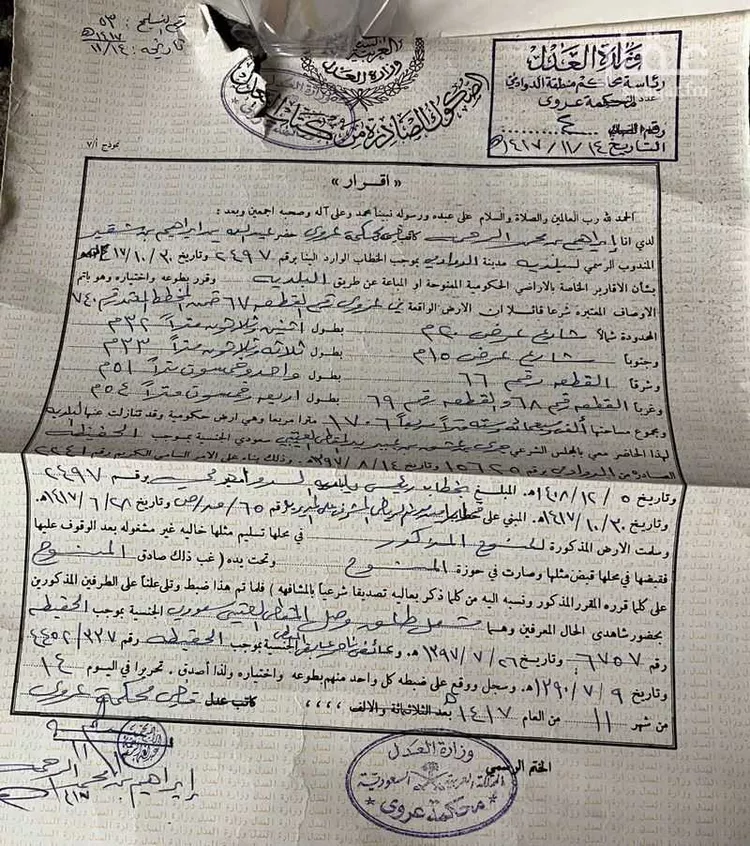 رقم التسليم : ٥٣
تاريخه : ١١/١٤/١٤١٧هـ
العربية السعودية
وزارة العدل
وزارة العدل
رئاسة محاكم منطقة الدوادمي
محكمة عروى
الصكوك الصادرة من كتاب العدل
التاريخ ١٤١٧/١١/١٤هـ
نموذج ٧/أ
« اقرار »
الحمد لله رب العالمين والصلاة والسلام على عبده ورسوله نبينا محمد وعلى آله وصحبه اجمعين وبعد :
لدي انا إبراهيم بن محمد الرحمن قاضي محكمة عروى حضر عبدالله بن ابراهيم بن شقير
المندوب الرسمي لبلدية مدينة الدوادمي بموجب الخطاب الوارد الينا برقم ٢٤٩٧ وتاريخ ١٧/١٠/٣٠
بشأن الأقارير الخاصة بالاراضي الحكومية الممنوحة او المباعة عن طريق البلدية وقرر بطوعه واختياره وهو باتم
الاوصاف المعتبرة شرعا قائلا ان الارض الواقعة في عروى رقم القطعه ٦٧ ضمن المخطط المعتمد رقم ٧٤٠
المحدودة شمالا شارع عرض ٢٠م بطول اثنين وثلاثون متراً ٣٢م
وجنوبا شارع عرض ١٥م بطول ثلاثه وثلاثون متراً ٣٣م
وشرقا القطعه رقم ٦٦ بطول واحد وخمسون متراً ٥١م
وغربا القطعه رقم ٦٨ والقطعه رقم ٦٩ بطول اربعه وخمسون متراً ٥٤م
وبمجموع مساحتها ألف وسبعمائه وسته متراً مربعاً ١٧٠٦ مترا مربعا وهي ارض حكومية وقد تنازلت عنها البلدية
لهذا الحاضر معي بالمجلس الشرعي سعودي الجنسية بموجب الحفيظة
الصادره من الدوادمي رقم ١٥٦٢٥ وتاريخ ١٣٩٧/٨/١٤ وذلك بناء على الامر السامي الكريم رقم ٢٢٤١
وتاريخ ١٤٠٨/١٢/٥هـ. المبلغ بخطاب رئيس بلدية الدوادمي برقم ٢٤٩٧
وتاريخ ١٤١٧/١٠/٣٠هـ. المبني على رقم ٦٥/ص وتاريخ ١٤١٧/٦/٢٨هـ.
وسلمت الارض المذكورة للممنوح المذكور في محلها تسليم مثلها خاليه غير مشغوله بعد الوقوف عليها
فقبضها في محلها قبض مثلها وصارت في حوزة الممنوح وتحت يده ( غب ذلك صادق الممنوح
على كلما قرره المقرر المذكور ونسبه اليه من كلما ذكر بعاليه تصديقا شرعياً بالمشافهه ) فلما تم هذا ضبط وتلي علناً على الطرفين المذكورين
بحضور شاهدي الحال المعرفين وهما العتيبي سعودي الجنسية بموجب الحفيظه
رقم ٦٧٥٧ وتاريخ ١٣٩٧/٧/٢٦هـ. الجنسية بموجب الحفيظه رقم ٤٤٥٢/٣٢٧
وتاريخ ١٢٩٠/٧/٩هـ. وسجل ووقع على ضبطه كل واحد منهم بطوعه واختياره ولذا أصدق. تحريرا في اليوم ١٤
من شهر ١١ من العام ١٤١٧ بعد الثلاثمائة والالف ،،،، كاتب عدل قاضي محكمة عروى
إبراهيم بن محمد الرحمن
الختم الرسمي
وزارة العدل
المملكة العربية السعودية
محكمة عروى